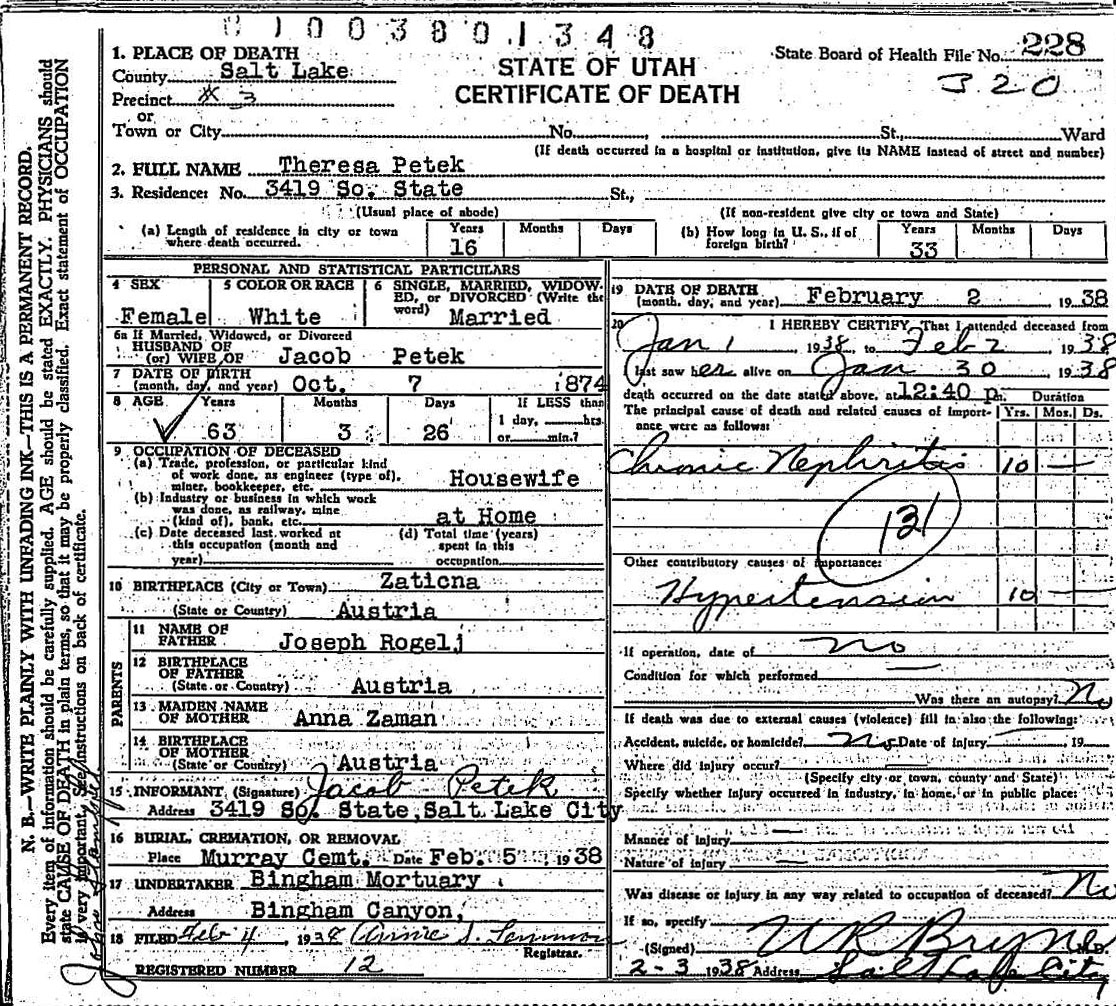 0100380.1348
1. PLACE OF DEATH
County Salt Lake
Precinct # 3
or
Town or City No. St., Ward
STATE OF UTAH
CERTIFICATE OF DEATH
State Board of Health File No. 228
320
(If death occurred in a hospital or institution, give its NAME instead of street and number)
2. FULL NAME Theresa Petek
3. Residence: No. 3419 So. State St.,
(Usual place of abode) (If non-resident give city or town and State)
(a) Length of residence in city or town where death occurred. Years 16 Months Days
(b) How long in U. S., if of foreign birth? Years 33 Months Days
PERSONAL AND STATISTICAL PARTICULARS
4 SEX Female
5 COLOR OR RACE White
6 SINGLE, MARRIED, WIDOWED, or DIVORCED (Write the word) Married
6a If Married, Widowed, or Divorced
HUSBAND OF
(or) WIFE OF Jacob Petek
7 DATE OF BIRTH
(month, day, and year) Oct. 7 1874
8 AGE Years 63 Months 3 Days 26
If LESS than
1 day, hrs
or min.?
9 OCCUPATION OF DECEASED
(a) Trade, profession, or particular kind
of work done, as engineer (type of),
miner, bookkeeper, etc. Housewife
(b) Industry or business in which work
was done, as railway, mine
(kind of), bank, etc. at Home
(c) Date deceased last worked at
this occupation (month and
year)
(d) Total time (years)
spent in this
occupation
10 BIRTHPLACE (City or Town) Zaticna
(State or Country) Austria
PARENTS
11 NAME OF
FATHER Joseph Rogelj
12 BIRTHPLACE
OF FATHER
(State or Country) Austria
13 MAIDEN NAME
OF MOTHER Anna Zaman
14 BIRTHPLACE
OF MOTHER
(State or Country) Austria
15 INFORMANT (Signature) Jacob Petek
Address 3419 So. State, Salt Lake City
16 BURIAL, CREMATION, OR REMOVAL
Place Murray Cemt. Date Feb. 5 1938
17 UNDERTAKER Bingham Mortuary
Address Bingham Canyon,
18 FILED Feb 4, 1938 Annie S.
Registrar.
REGISTERED NUMBER 12
19 DATE OF DEATH
(month, day, and year) February 2 1938
20 I HEREBY CERTIFY, That I attended deceased from
Jan 1 1938, to Feb 2 1938
last saw her alive on Jan 30 1938
death occurred on the date stated above, at 12:40 p m. Duration
The principal cause of death and related causes of importance were as follows: Yrs. Mos. Ds.
Chronic Nephritis 10 —
131
Other contributory causes of importance:
Hypertension 10 —
If operation, date of no
Condition for which performed
Was there an autopsy? No
If death was due to external causes (violence) fill in also the following:
Accident, suicide, or homicide? No Date of injury 19
Where did injury occur?
(Specify city or town, county and State)
Specify whether injury occurred in industry, in home, or in public place:
Manner of injury
Nature of injury
Was disease or injury in any way related to occupation of deceased? No
If so, specify
(Signed) M.D.
2-3 1938 Address Salt Lake City
N. B.—WRITE PLAINLY WITH UNFADING INK—THIS IS A PERMANENT RECORD.
Every item of information should be carefully supplied. AGE should be stated EXACTLY. PHYSICIANS should
state CAUSE OF DEATH in plain terms, so that it may be properly classified. Exact statement of OCCUPATION
is very important. See instructions on back of certificate.